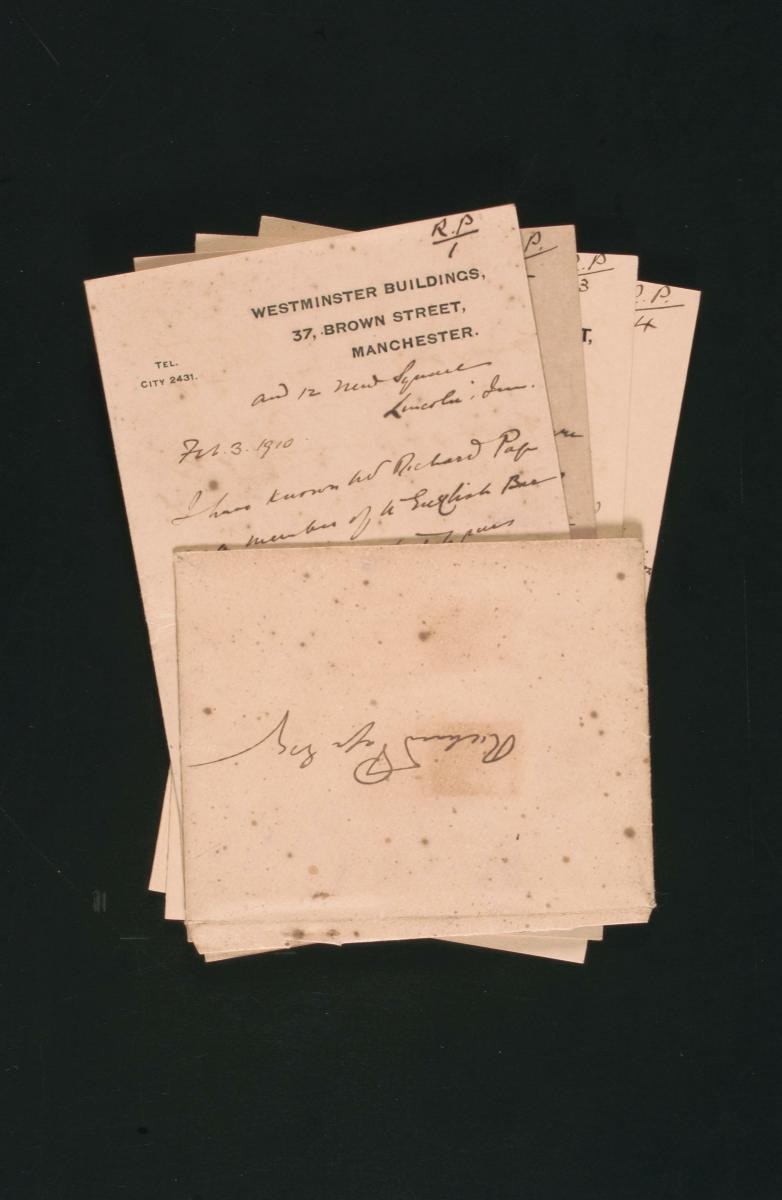 R.P
1
WESTMINSTER BUILDINGS,
37, BROWN STREET,
MANCHESTER.
TEL.
CITY 2431.
and 12 New Square
Lincoln's Inn.
Feb. 3. 1910
I have known Mr Richard Pope
a member of the English Bar
years
P.
R.P
3
T,
R.P.
4
Richard Pope Esq